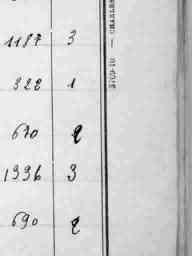 1187 3
322 1
670 2
1336 3
690 2
3709-10 — CHARLES